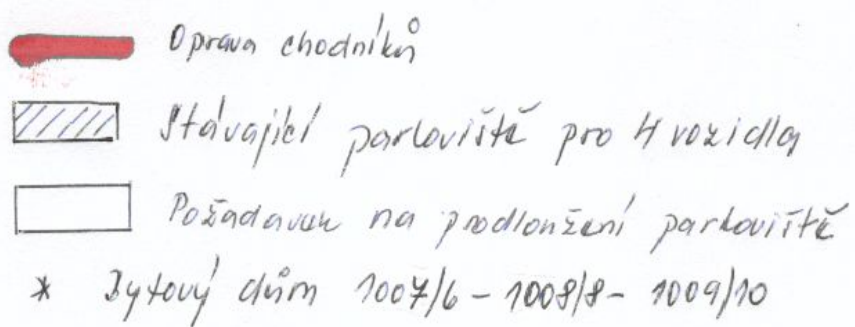 Oprava chodníků
Stávající parkoviště pro 4 vozidla
Požadavek na prodloužení parkoviště
* Bytový dům 1007/6 - 1008/8 - 1009/10